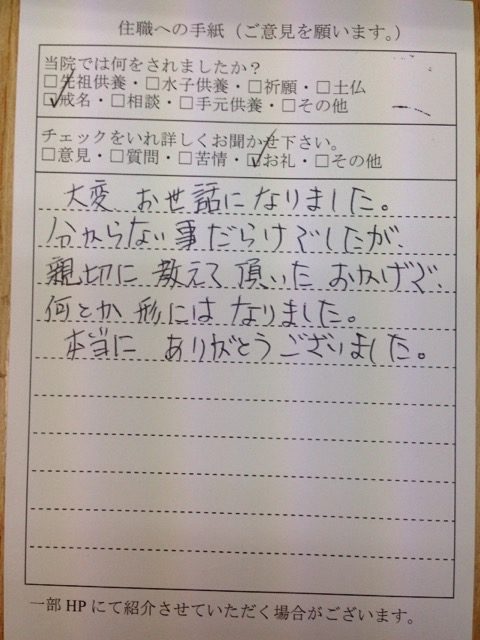 住職への手紙（ご意見を願います。）
当院では何をされましたか？
□先祖供養・□水子供養・□祈願・□土仏
☑戒名・□相談・□手元供養・□その他
チェックをいれ詳しくお聞かせ下さい。
□意見・□質問・□苦情・☑お礼・□その他
大変 お世話になりました。
分からない事だらけでしたが、
親切に 教えて 頂いた おかげで、
何とか 形には なりました。
本当に ありがとうございました。
一部 HP にて紹介させていただく場合がございます。